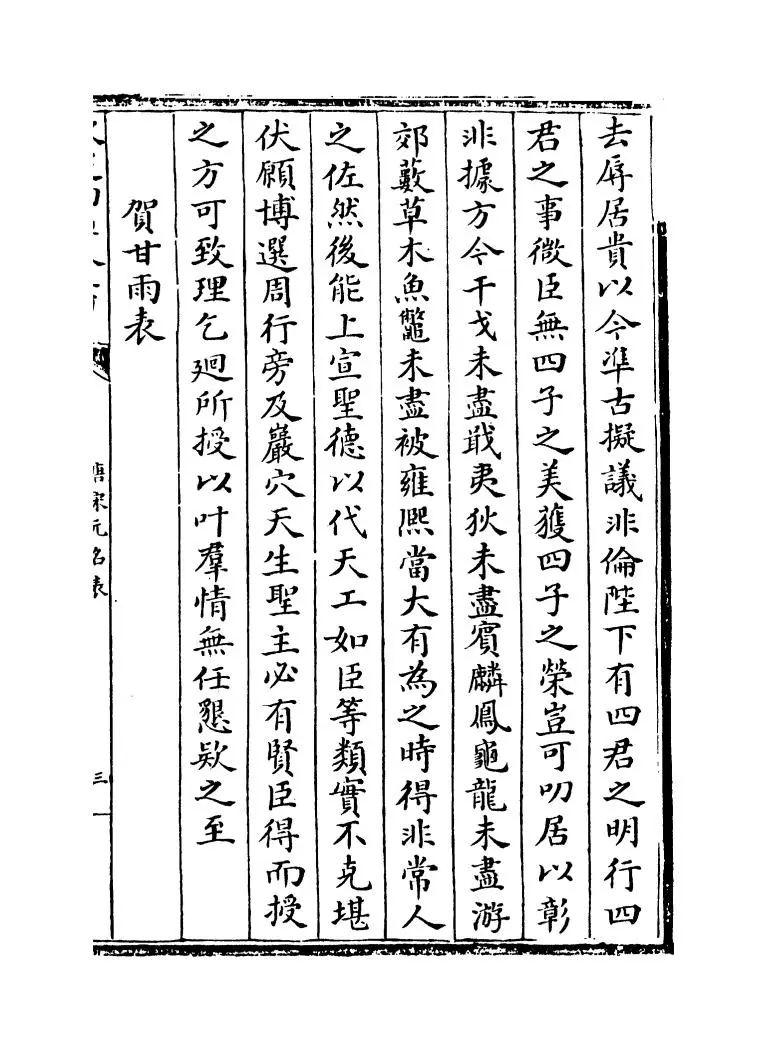 去辱居貴以今準古擬議非倫陛下有四君之明行四
君之事微臣無四子之美獲四子之榮豈可叨居以彰
非據方今干戈未盡戢夷狄未盡賓麟鳳龜龍未盡游
郊藪草木魚鼈未盡被雍熙當大有為之時得非常人
之佐然後能上宣聖德以代天工如臣等類實不克堪
伏願博選周行旁及巖穴天生聖主必有賢臣得而授
之方可致理乞廻所授以叶羣情無任懇欵之至
賀甘雨表
唐宋元名表
三